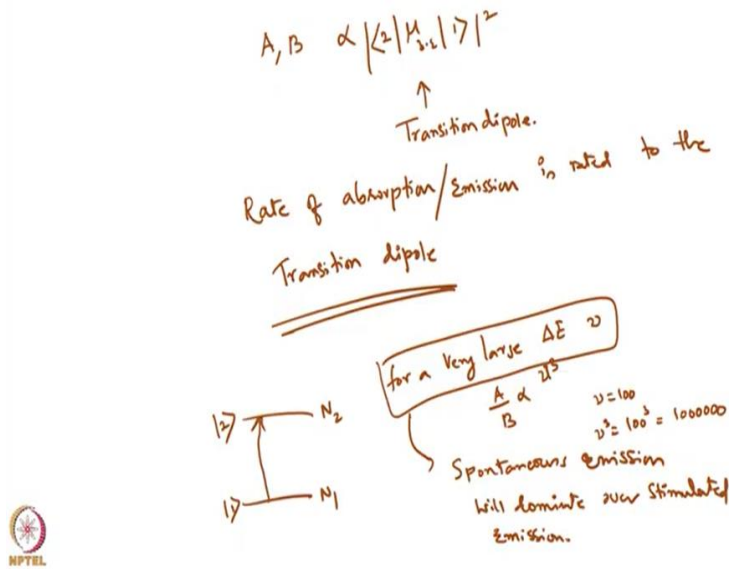 A, B α |⟨2|μ_{j.ε}|1⟩|²
↑
Transition dipole.
Rate of absorption/Emission is rated to the
Transition dipole
for a very large ΔE ν
A/B α ν³
ν=100
ν³= 100³ = 1000000
|2⟩ N₂
|1⟩ N₁
Spontaneous emission
will dominte over Stimulated
Emission.
NPTEL